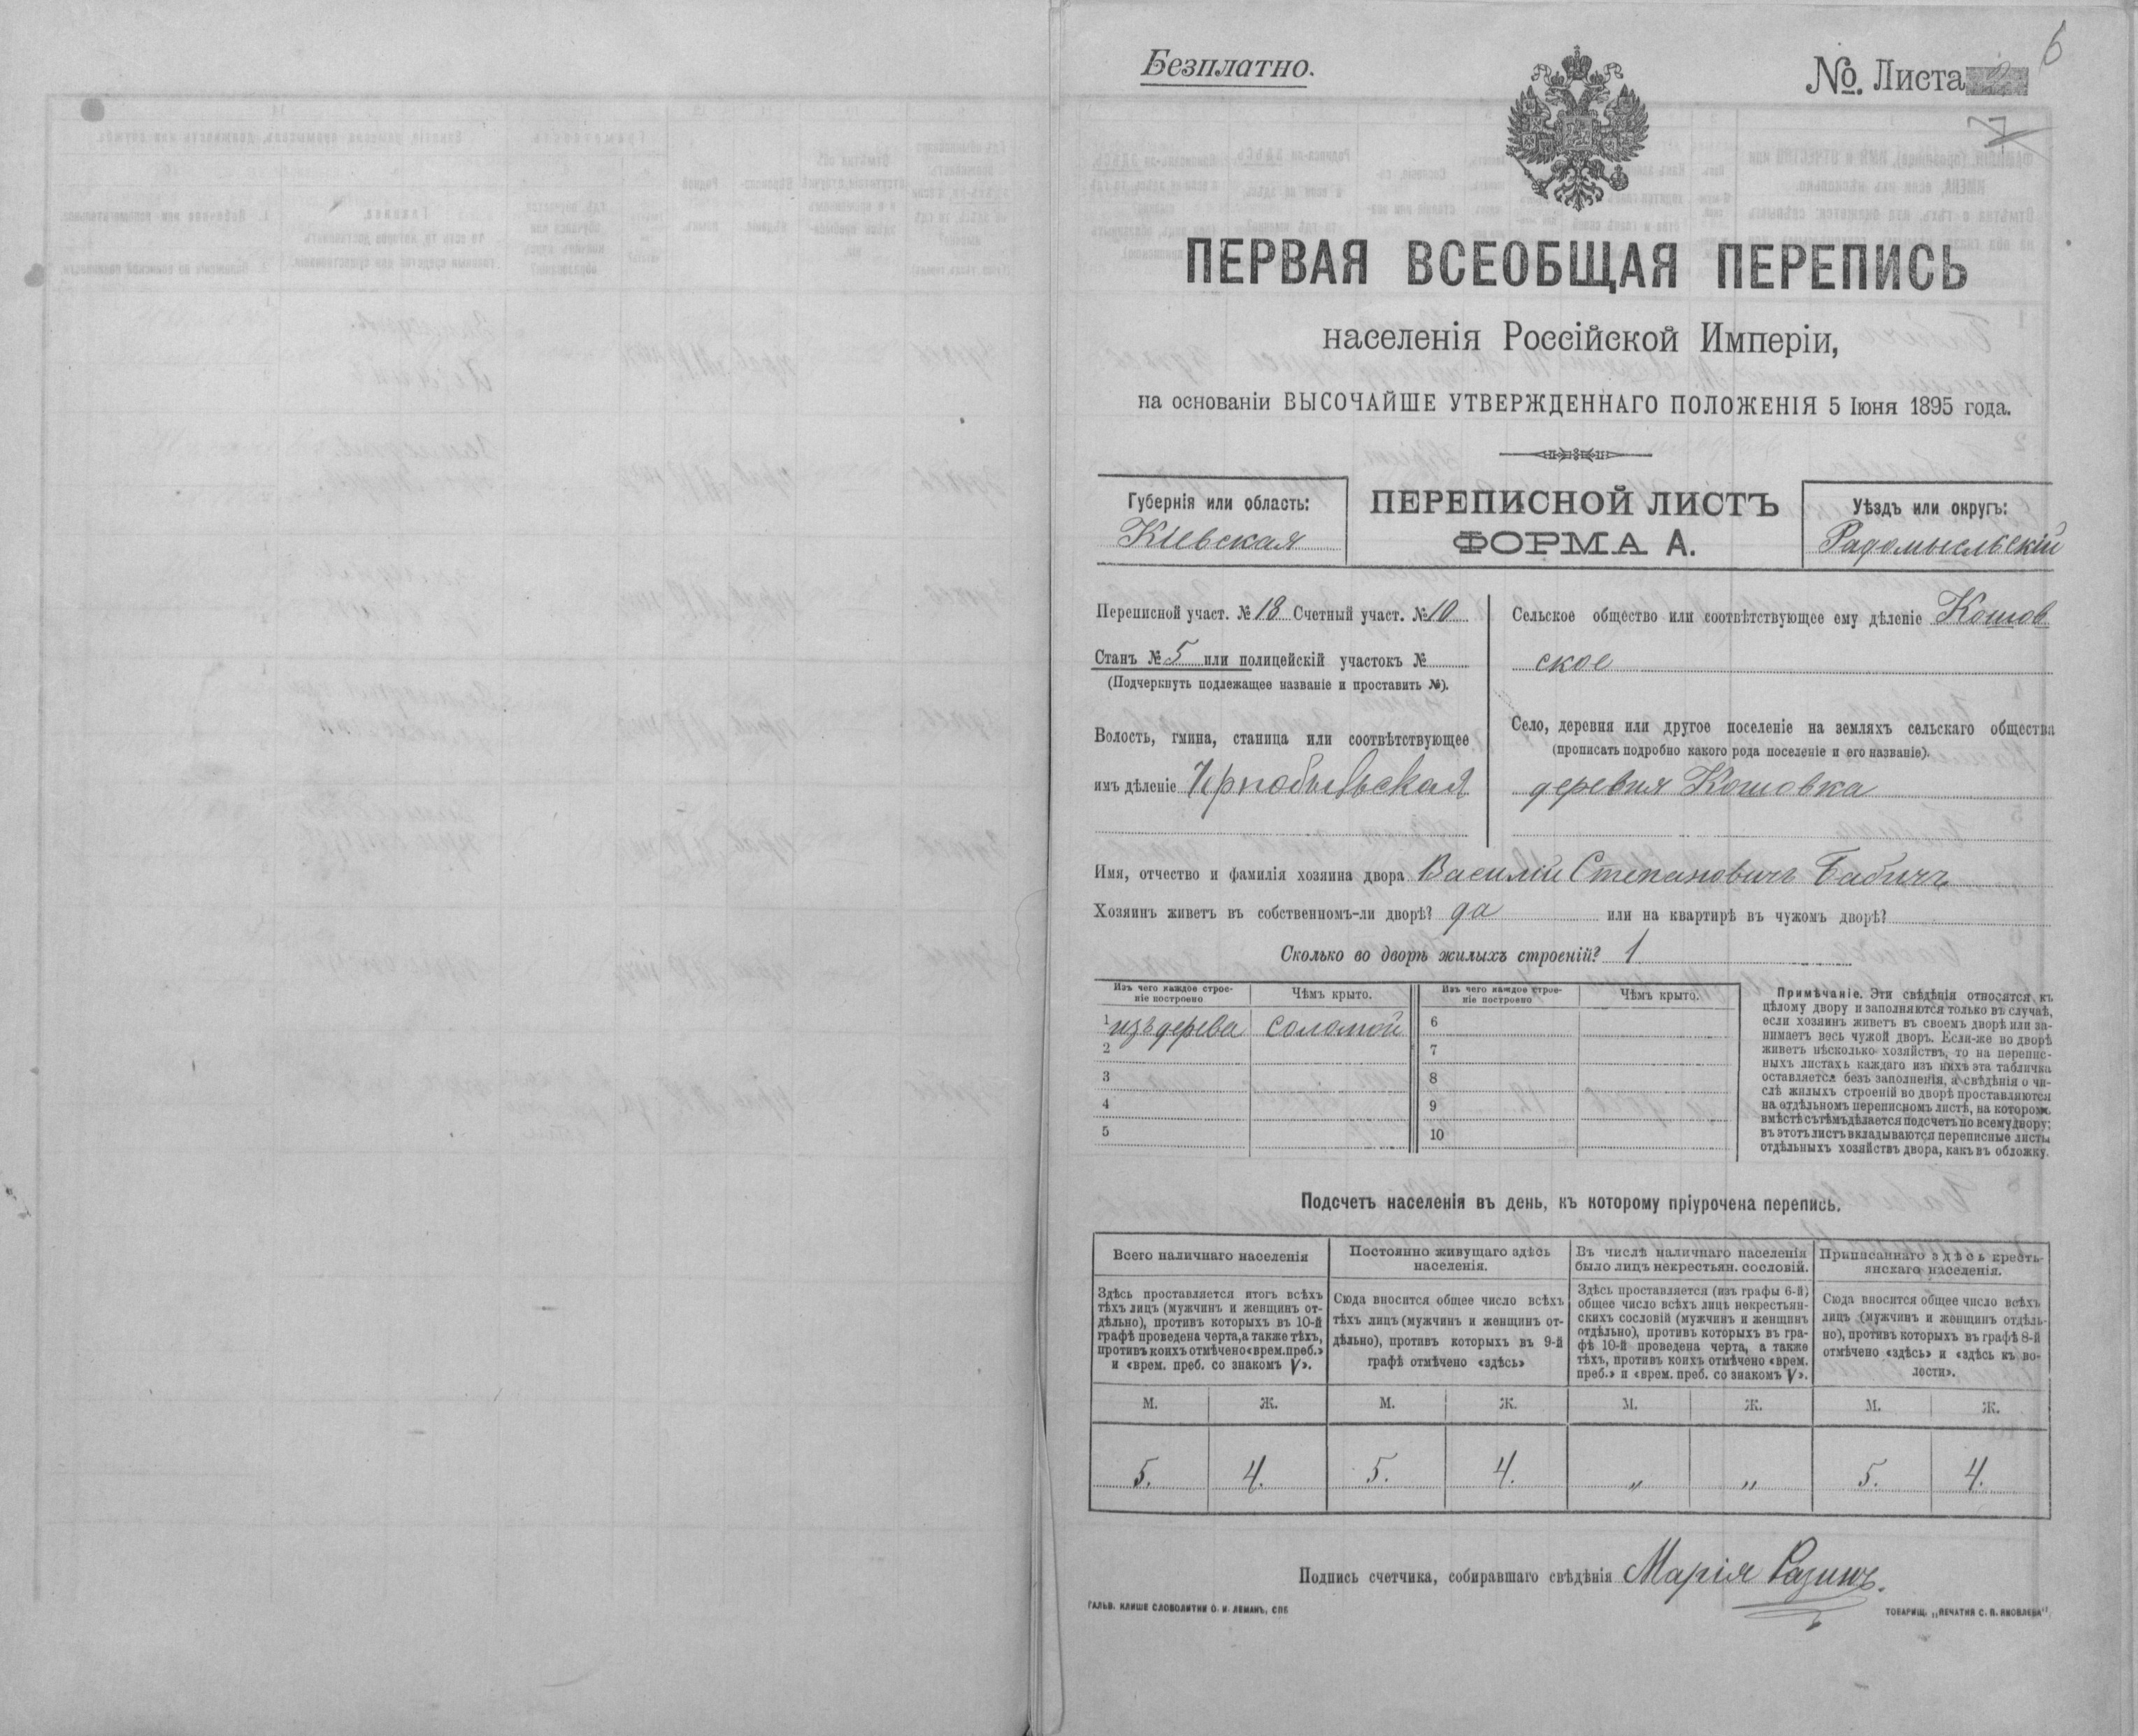 Безплатно.
№. Листа
6
ПЕРВАЯ ВСЕОБЩАЯ ПЕРЕПИСЬ
населенія Россійской Имперіи,
на основаніи ВЫСОЧАЙШЕ УТВЕРЖДЕННАГО ПОЛОЖЕНІЯ 5 Іюня 1895 года.
Губернія или область:
Кіевская
ПЕРЕПИСНОЙ ЛИСТЪ
ФОРМА А.
Уѣздъ или округъ:
Радомысльскій
Переписной участ. № 18 Счетный участ. № 10
Станъ № 5 или полицейскій участокъ №
(Подчеркнуть подлежащее названіе и проставить №).
Волость, гмина, станица или соотвѣтствующее
имъ дѣленіе Чернобыльская
Сельское общество или соотвѣтствующее ему дѣленіе Кошов
ское
Село, деревня или другое поселеніе на земляхъ сельскаго общества
(прописать подробно какого рода поселеніе и его названіе).
деревня Кошовка
Имя, отчество и фамилія хозяина двора Василій Степановичъ Бабичъ
Хозяинъ живетъ въ собственномъ-ли дворѣ? да или на квартирѣ въ чужомъ дворѣ?
Сколько во дворѣ жилыхъ строеній? 1
Изъ чего каждое строе-
ніе построено
Чѣмъ крыто.
Изъ чего каждое строе-
ніе построено
Чѣмъ крыто.
1 изъ дерева соломой 6
2 7
3 8
4 9
5 10
Примѣчаніе. Эти свѣдѣнія относятся къ
цѣлому двору и заполняются только въ случаѣ,
если хозяинъ живетъ въ своемъ дворѣ или за-
нимаетъ весь чужой дворъ. Если-же во дворѣ
живетъ нѣсколько хозяйствъ, то на перепис-
ныхъ листахъ каждаго изъ нихъ эта табличка
оставляется безъ заполненія, а свѣдѣнія о чи-
слѣ жилыхъ строеній во дворѣ проставляются
на отдѣльномъ переписномъ листѣ, на которомъ
вмѣстѣ съ тѣмъ дѣлается подсчетъ по всему двору;
въ этотъ листъ вкладываются переписные листы
отдѣльныхъ хозяйствъ двора, какъ въ обложку.
Подсчетъ населенія въ день, къ которому пріурочена перепись.
Всего наличнаго населенія
Постоянно живущаго здѣсь
населенія.
Въ числѣ наличнаго населенія
было лицъ некрестьян. сословій.
Приписаннаго здѣсь кресть-
янскаго населенія.
Здѣсь проставляется итогъ всѣхъ
тѣхъ лицъ (мужчинъ и женщинъ от-
дѣльно), противъ которыхъ въ 10-й
графѣ проведена черта, а также тѣхъ,
противъ коихъ отмѣчено «врем. преб.»
и «врем. преб. со знакомъ V».
Сюда вносится общее число всѣхъ
тѣхъ лицъ (мужчинъ и женщинъ от-
дѣльно), противъ которыхъ въ 9-й
графѣ отмѣчено «здѣсь»
Здѣсь проставляется (изъ графы 6-й)
общее число всѣхъ лицъ некрестьян-
скихъ сословій (мужчинъ и женщинъ
отдѣльно), противъ которыхъ въ гра-
фѣ 10-й проведена черта, а также
тѣхъ, противъ коихъ отмѣчено «врем.
преб.» и «врем. преб. со знакомъ V».
Сюда вносится общее число всѣхъ
лицъ (мужчинъ и женщинъ отдѣль-
но), противъ которыхъ въ графѣ 8-й
отмѣчено «здѣсь» и «здѣсь къ во-
лости».
М. Ж. М. Ж. М. Ж. М. Ж.
5. 4. 5. 4. „ „ 5. 4.
Подпись счетчика, собиравшаго свѣдѣнія Марія
ГАЛЬВ. КЛИШЕ СЛОВОЛИТНИ О. И. ЛЕМАНЪ, СПБ
ТОВАРИЩ. „ПЕЧАТНЯ С. П. ЯКОВЛЕВА“